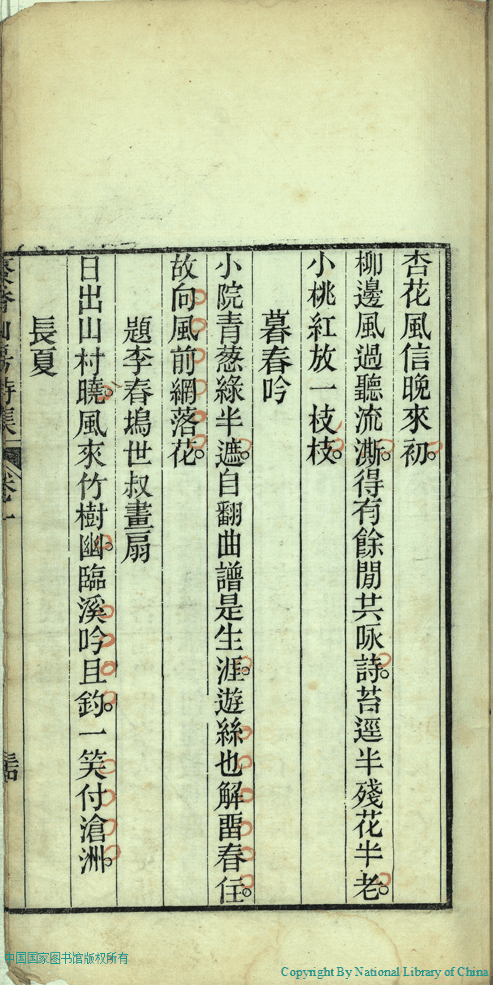 杏花風信晚來初。
柳邊風過聽流澌。得有餘閒共咏詩。苔逕半殘花半老。
小桃紅放一枝枝。
暮春吟
小院青蔥綠半遮。自翻曲譜是生涯。遊絲也解畱春住。
故向風前網落花。
題李春塢世叔畫扇
日出山村曉。風來竹樹幽。臨溪吟且釣。一笑付滄洲。
長夏
中国国家图书馆版权所有
Copyright By National Library of China